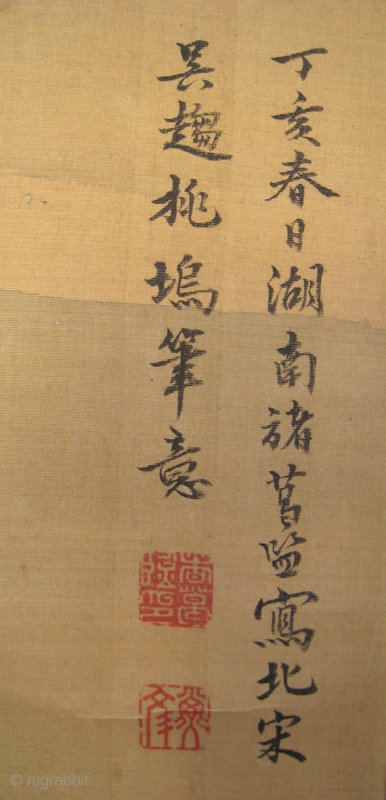 丁亥春日湖南諸葛監寫北宋
吳趨桃塢筆意
© rugrabbit